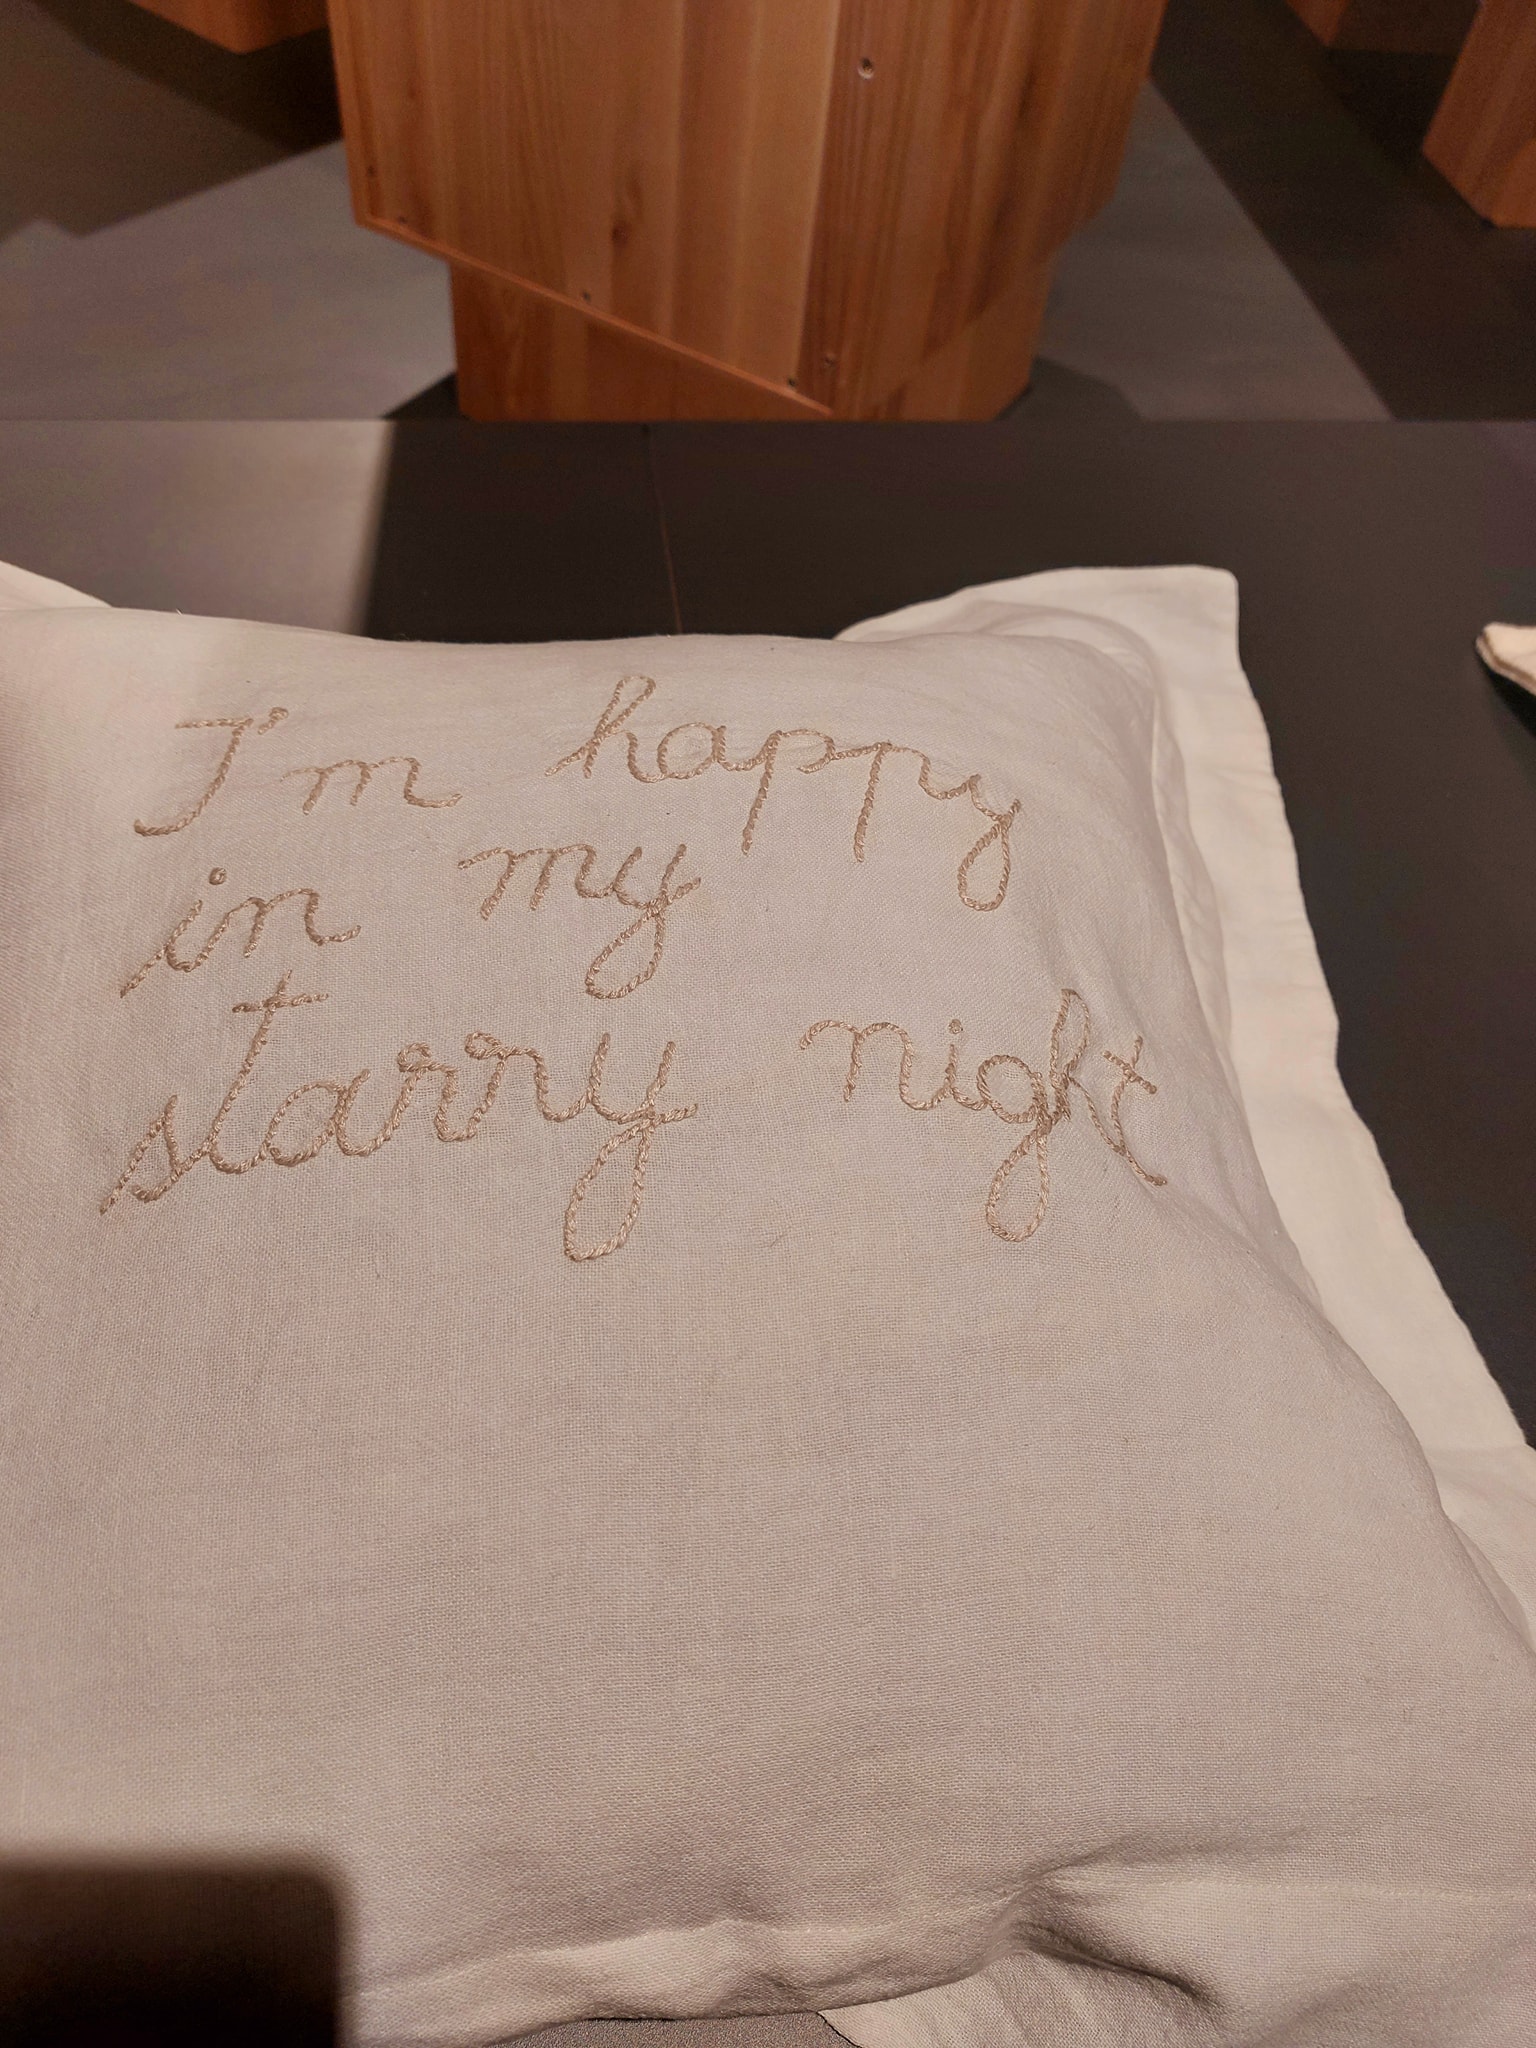 I'm happy
in my
starry night